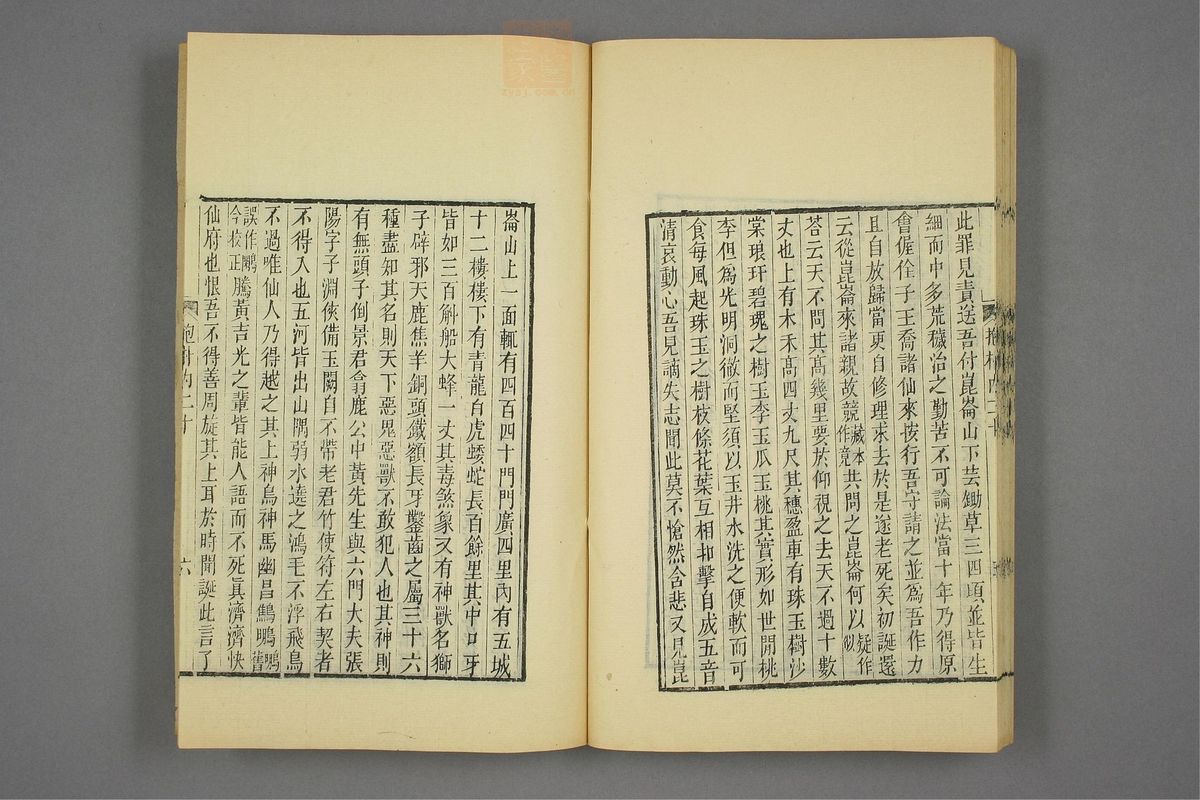 此罪見責送吾付崑崙山下芸鋤草三四頃並皆生
細而中多荒穢治之勤苦不可論法當十年乃得原
會偓佺子王喬諸仙來按行吾守請之並爲吾作力
且自放歸當更自修理求去於是遂老死矣初誕還
云從崑崙來諸親故競藏本作竟共問之崑崙何以疑作似
荅云天不問其高幾里要於仰視之去天不過十數
丈也上有木禾高四丈九尺其穗盈車有珠玉樹沙
棠琅玕碧瑰之樹玉李玉瓜玉桃其實形如世閒桃
李但爲光明洞徹而堅須以玉井水洗之便軟而可
食每風起珠玉之樹枝條花葉互相扣擊自成五音
清哀動心吾見謫失志聞此莫不愴然含悲又見崑
崙山上一面輒有四百四十門門廣四里內有五城
十二樓樓下有青龍白虎蜲蛇長百餘里其中口牙
皆如三百斛船大蜂一丈其毒煞象又有神獸名獅
子辟邪天鹿焦羊銅頭鐵額長牙鑿齒之屬三十六
種盡知其名則天下惡鬼惡獸不敢犯人也其神則
有無頭子倒景君翕鹿公中黃先生與六門大夫張
陽字子淵俠備玉闕自不帶老君竹使符左右契者
不得入也五河皆出山隅弱水遶之鴻毛不浮飛鳥
不過唯仙人乃得越之其上神鳥神馬幽昌鷦鵬鵬舊
誤作鶥今校正騰黃吉光之輩皆能人語而不死眞濟濟快
仙府也恨吾不得善周旋其上耳於時聞誕此言了
抱朴內二十
六
zysj.com.cn